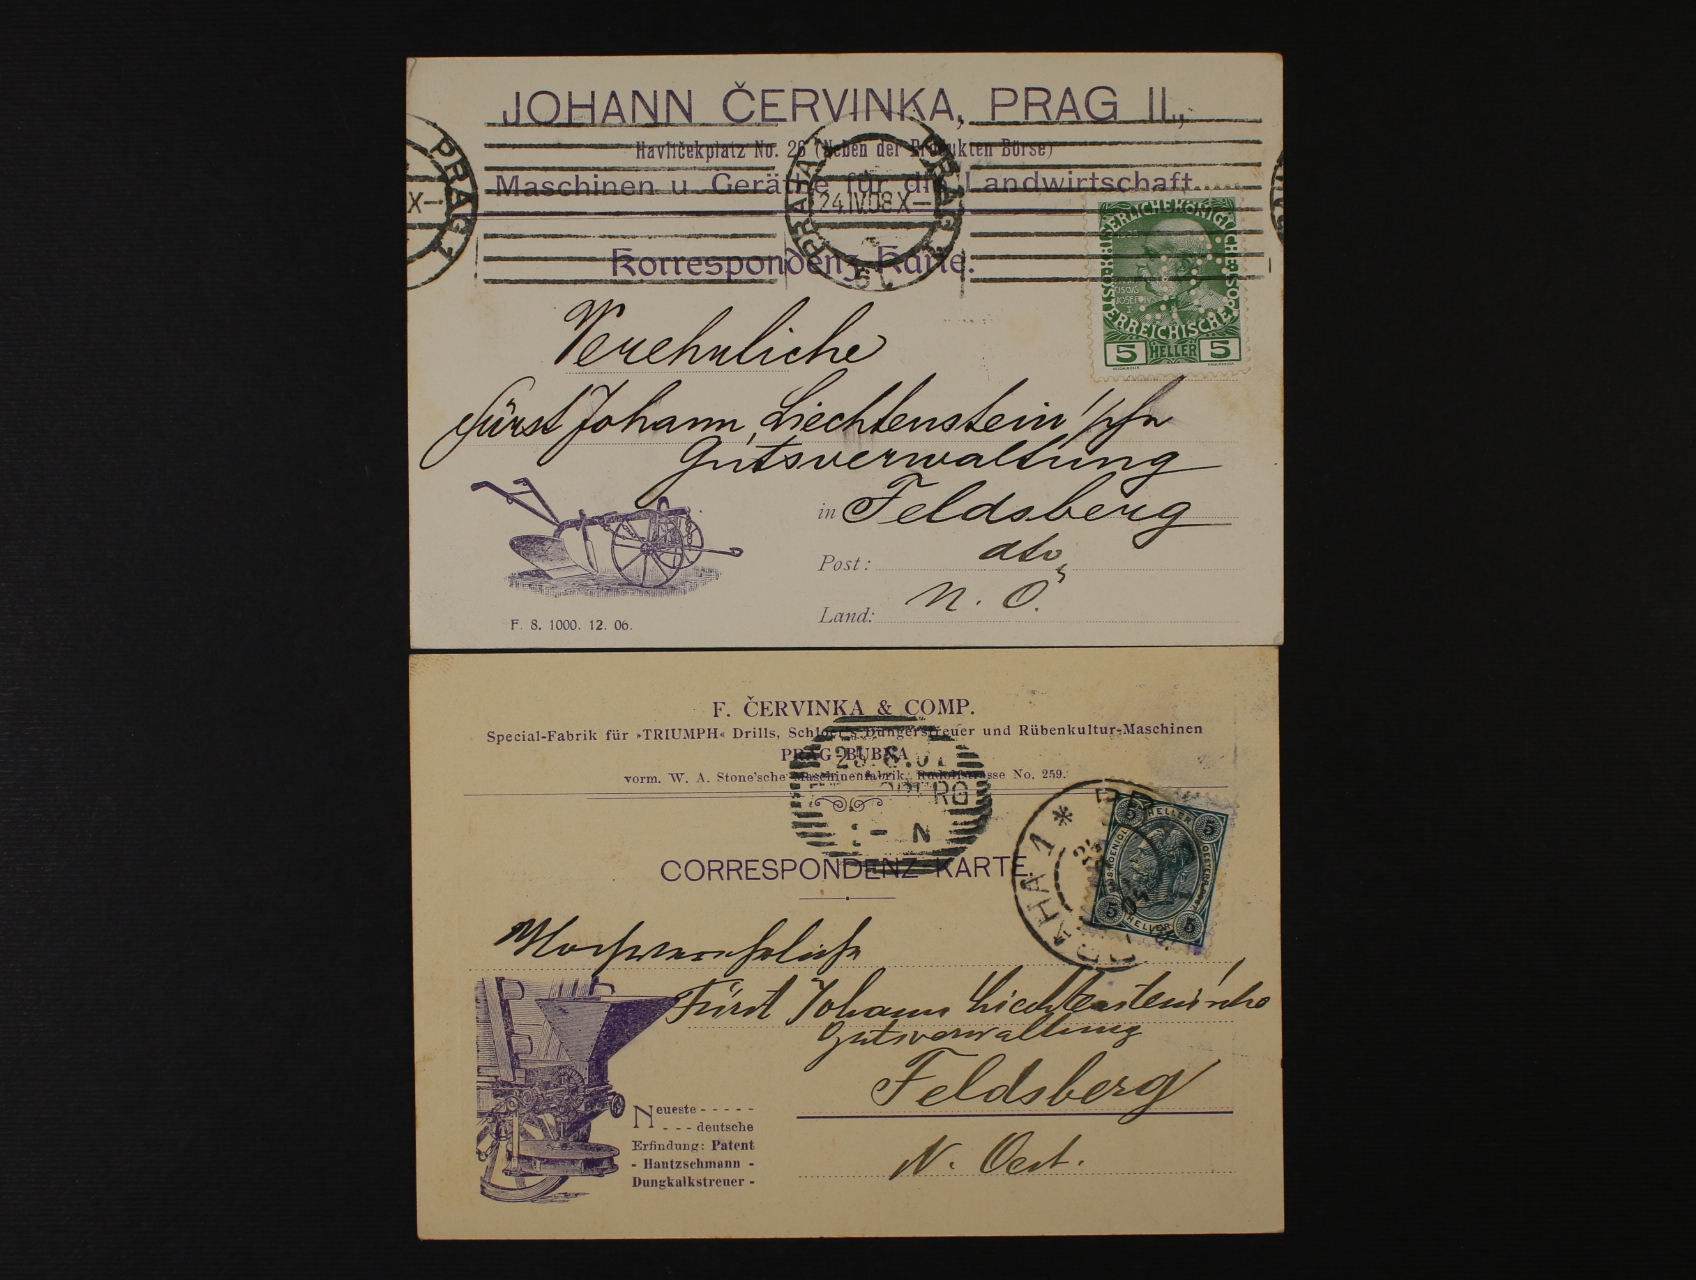 JOHANN ČERVINKA, PRAG II.,
Havlíčekplatz No. 26 (Neben der Produkten Börse)
Maschinen u. Geräthe für die Landwirtschaft.
PRAG 1
X-
PRAHA PRAG 1
24.IV.08 X-
Korrespondenz-Karte.
KAISERLICHE KÖNIGLICHE
ÖSTERREICHISCHE POST
5 HELLER 5
Verehrliche
Fürst Johann Liechtenstein'sche
Gutsverwaltung
in Feldsberg
Post: dto
Land: N. Ö.
F. 8. 1000. 12. 06.
F. ČERVINKA & COMP.
Special-Fabrik für »TRIUMPH« Drills, Schloer's Düngerstreuer und Rübenkultur-Maschinen
PRAG-BUBNA
vorm. W. A. Stone'sche Maschinenfabrik, Rudolfstrasse No. 259.
FELDSBERG
N
CORRESPONDENZ-KARTE.
PRAHA 1 *
5 HELLER 5
5 HELLER 5
Hochverehrliche
Fürst Johann Liechtenstein'sche
Gutsverwaltung
Feldsberg
N. Oest.
Neueste - - - - -
- - - deutsche
Erfindung: Patent
- Hantzschmann -
Dungkalkstreuer -